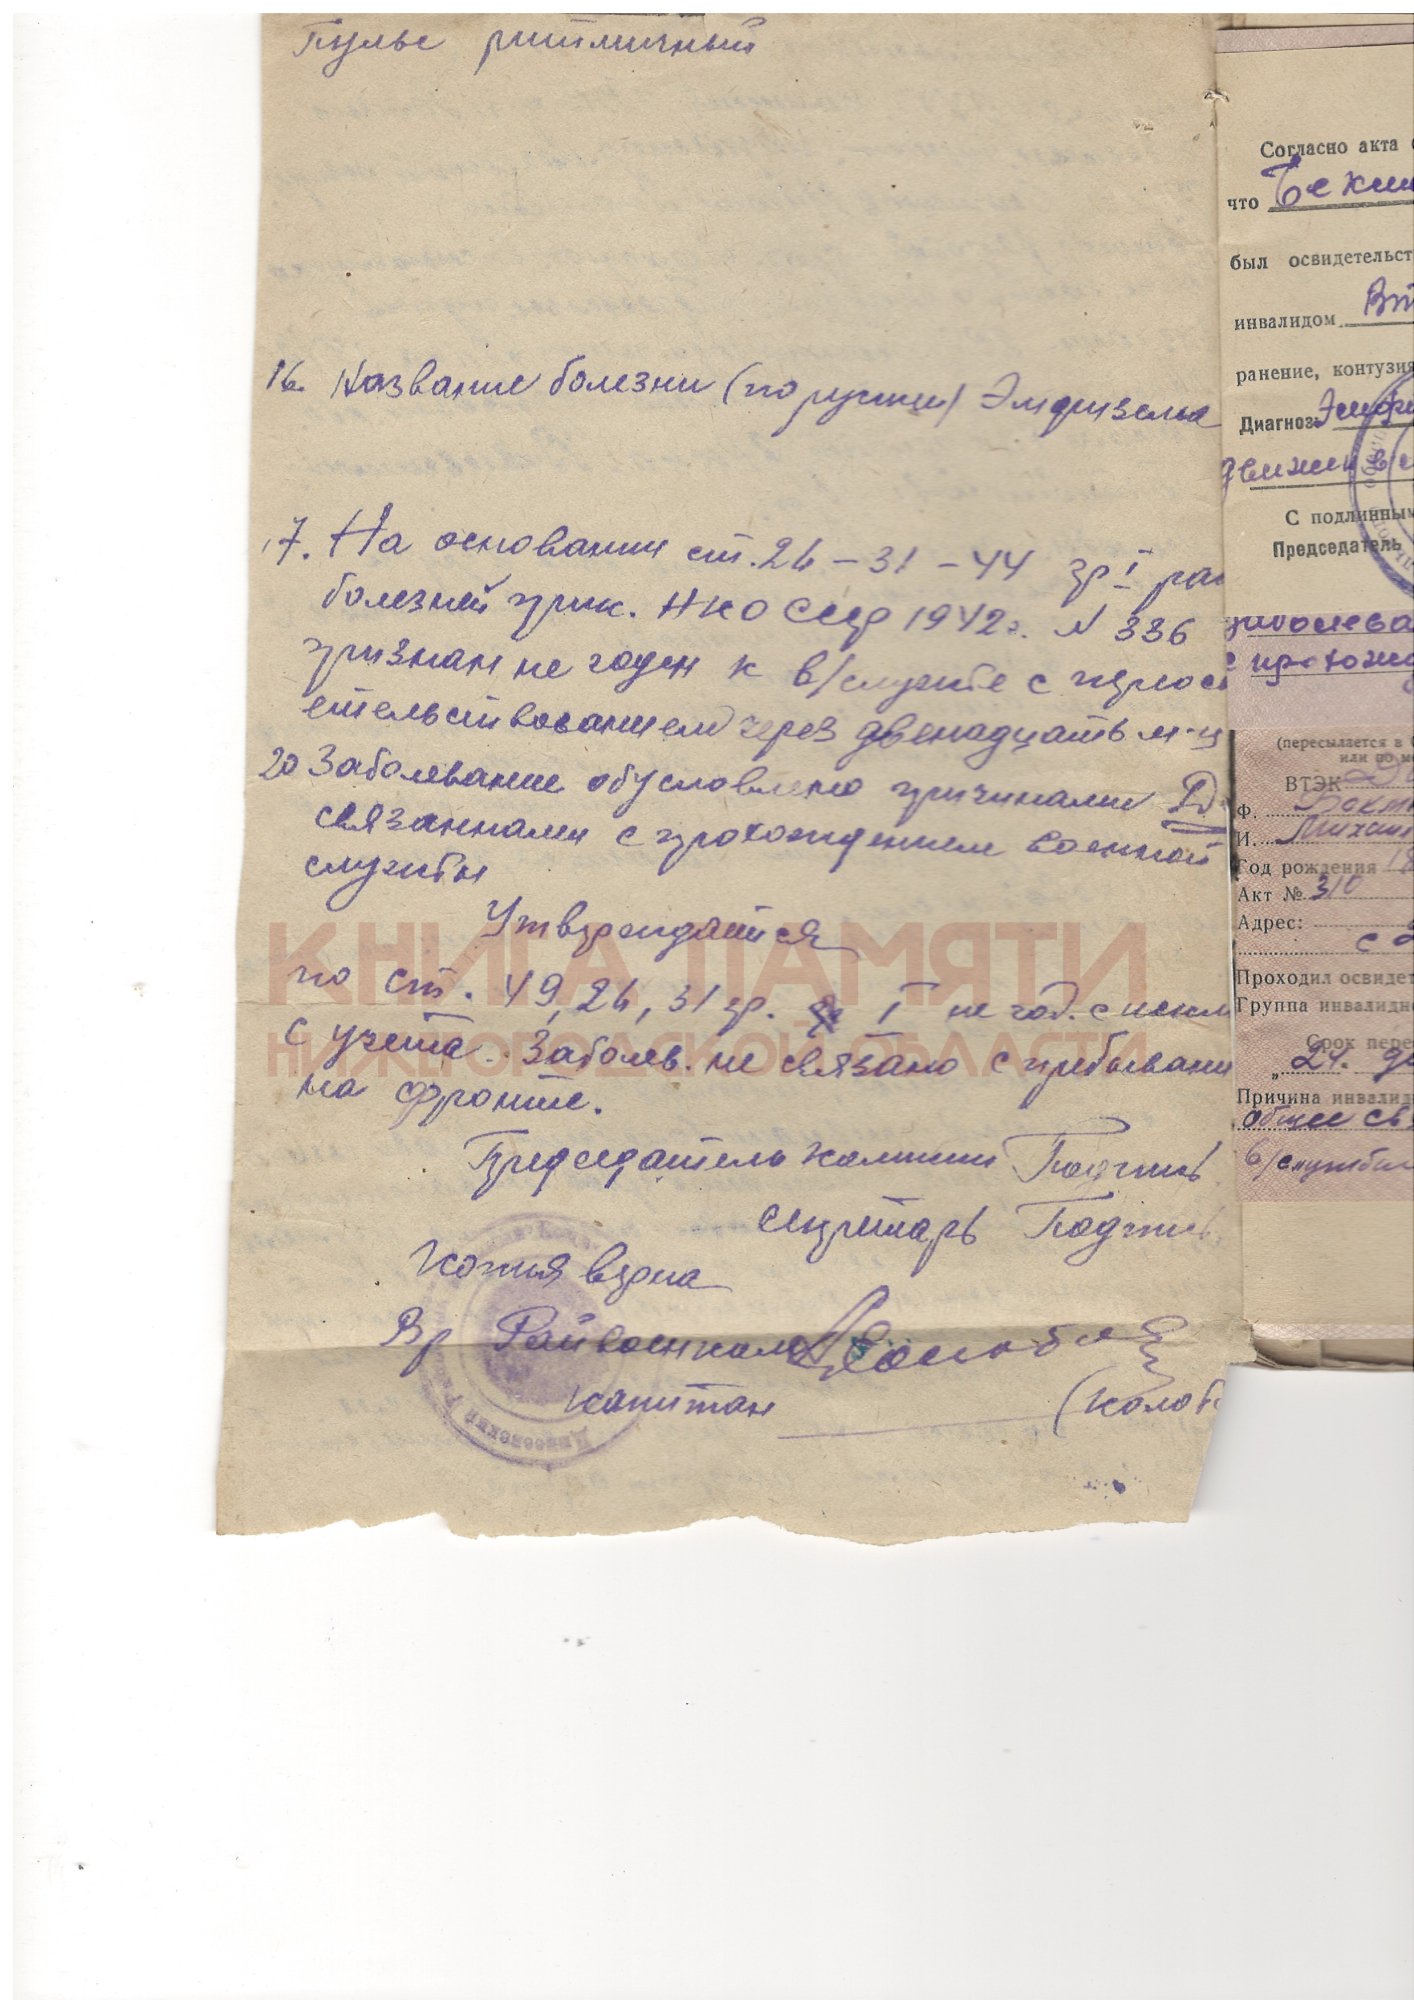 Пульс ритмичный
16. Название болезни (по русски) Эмфизема
17. На основании ст. 26 – 31 – 44 гр I рас
болезней прик. НКО СССР 1942 г. N 336
признан не годен к в/службе с переос
етельствованием через двенадцать м-ц
20 Заболевание обусловлено причинами
связанными с прохождением военной
службы
Утверждается
по ст. 49, 26, 31 гр. I не год. с искл
с учета. Заболев. не связано с пребывани
на фронте.
Председатель комиссии Подпись
Секретарь Подпись
Копия верна
Вр Райвоенком
капитан (Колоб
КНИГА ПАМЯТИ
НИЖЕГОРОДСКОЙ ОБЛАСТИ
Согласно акта
что Бекши
был освидетельст
инвалидом Вт
ранение, контузия
Диагноз: Эмфи
С подлинным
Председатель
заболева
с прохожд
(пересылается в
или по ме
ВТЭК
Ф.
И. Михаи
Год рождения 18
Акт № 310
Адрес:
Проходил освидет
Группа инвалидн
Срок пере
„24. де
Причина инвалид
общее свя
в/службы